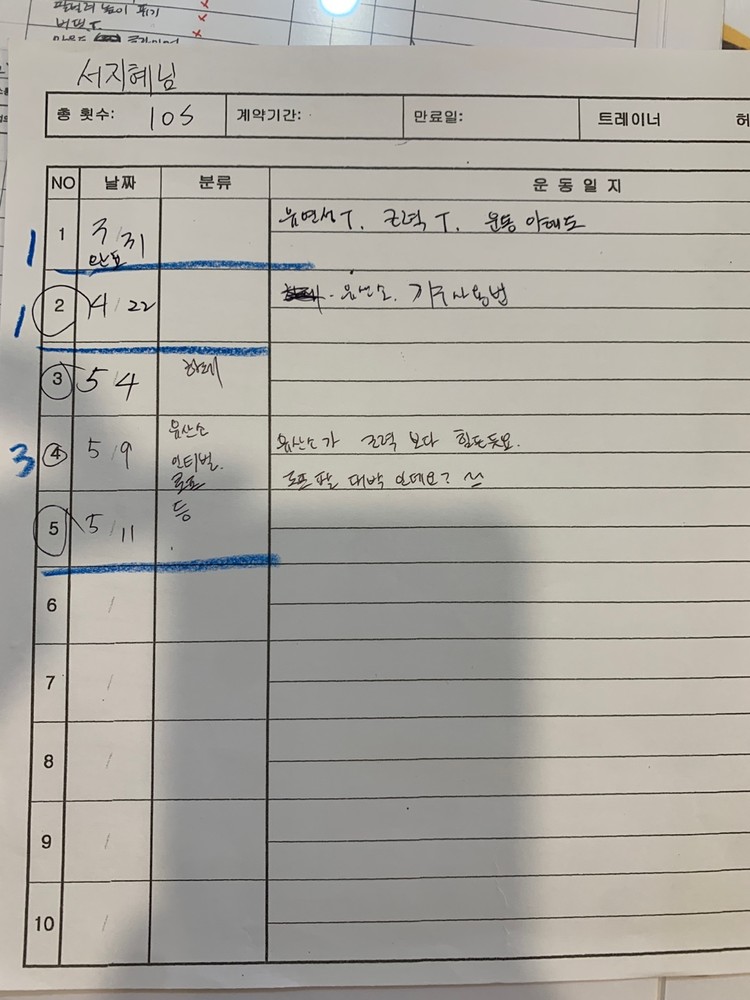 버피 T
서지혜님
총 횟수: 10S 계약기간: 만료일: 트레이너 허
NO 날짜 분류 운동일지
1 3/31 유연성T. 근력 T. 운동
2 4/22 유산소. 기구사용법
3 5/4 하체
4 5/9 유산소 유산소가 근력 보다 힘드듯요.
인터벌.
로프 로프 팔 대박 인데요? ^^
5 5/11 등
6 /
7 /
8 /
9 /
10 /
1
1
3